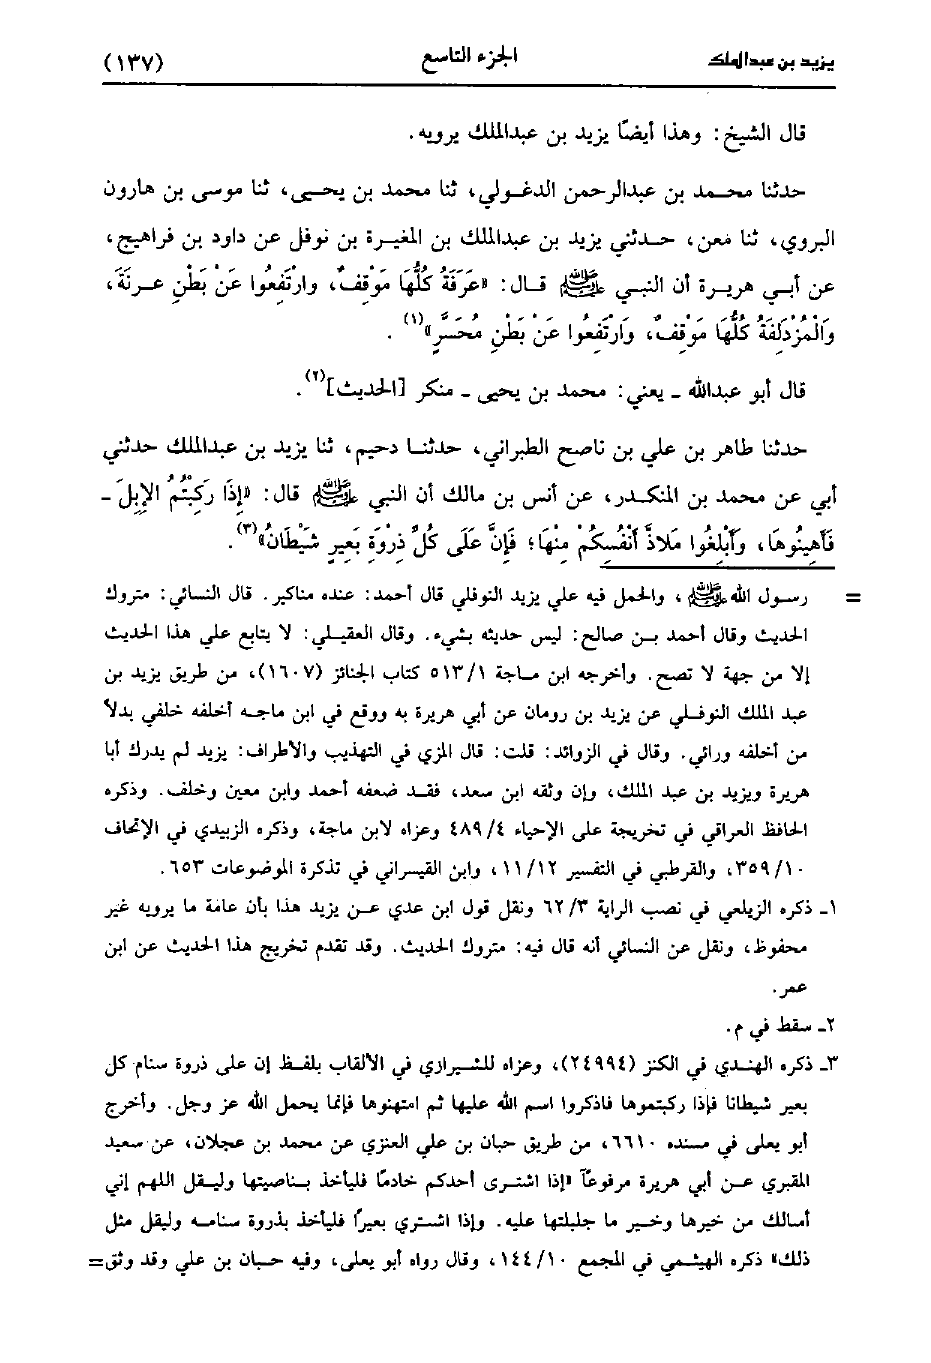 يزيد بن عبدالملك الجزء التاسع (١٣٧)
قال الشيخ: وهذا أيضًا يزيد بن عبدالملك يرويه.
حدثنا محمد بن عبدالرحمن الدغولي، ثنا محمد بن يحيى، ثنا موسى بن هارون
البروي، ثنا معن، حدثني يزيد بن عبدالملك بن المغيرة بن نوفل عن داود بن فراهيج،
عن أبي هريرة أن النبي ﷺ قال: «عَرَفَةُ كُلُّهَا مَوْقِفٌ، وارْتَفِعُوا عَنْ بَطْنِ عرنَةَ،
وَالْمُزْدَلِفَةُ كُلُّهَا مَوْقِفٌ، وَارْتَفِعُوا عَنْ بَطْنِ مُحَسَّرٍ»(١).
قال أبو عبدالله ـ يعني: محمد بن يحيى ـ منكر [الحديث](٢).
حدثنا طاهر بن علي بن ناصح الطبراني، حدثنا دحيم، ثنا يزيد بن عبدالملك حدثني
أبي عن محمد بن المنكدر، عن أنس بن مالك أن النبي ﷺ قال: «إذَا رَكِبْتُمُ الإبِلَ ـ
فَأهِينُوهَا، وَأَبْلِغُوا مَلاذَّ أَنْفُسِكُمْ مِنْهَا؛ فَإنَّ عَلَى كُلِّ ذِرْوَةِ بَعِيرٍ شَيْطَانُ»(٣).
= رسول الله ﷺ، والحمل فيه علي يزيد النوفلي قال أحمد: عنده مناكير. قال النسائي: متروك
الحديث وقال أحمد بن صالح: ليس حديثه بشيء. وقال العقيلي: لا يتابع علي هذا الحديث
إلا من جهة لا تصح. وأخرجه ابن ماجة ٥١٣/١ كتاب الجنائز (١٦٠٧)، من طريق يزيد بن
عبد الملك النوفلي عن يزيد بن رومان عن أبي هريرة به ووقع في ابن ماجه أخلفه خلفي بدلاً
من أخلفه ورائي. وقال في الزوائد: قلت: قال المزي في التهذيب والأطراف: يزيد لم يدرك أبا
هريرة ويزيد بن عبد الملك، وإن وثقه ابن سعد، فقد ضعفه أحمد وابن معين وخلف. وذكره
الحافظ العراقي في تخريجة على الإحياء ٤٨٩/٤ وعزاه لابن ماجة، وذكره الزبيدي في الإتحاف
٣٥٩/١٠، والقرطبي في التفسير ١١/١٢، وابن القيسراني في تذكرة الموضوعات ٦٥٣.
١ـ ذكره الزيلعي في نصب الراية ٦٢/٣ ونقل قول ابن عدي عن يزيد هذا بأن عامة ما يرويه غير
محفوظ، ونقل عن النسائي أنه قال فيه: متروك الحديث. وقد تقدم تخريج هذا الحديث عن ابن
عمر.
٢ـ سقط في م.
٣ـ ذكره الهندي في الكنز (٢٤٩٩٤)، وعزاه للشيرازي في الألقاب بلفظ إن على ذروة سنام كل
بعير شيطانا فإذا ركبتموها فاذكروا اسم الله عليها ثم امتهنوها فإنما يحمل الله عز وجل. وأخرج
أبو يعلى في مسنده ٦٦١٠، من طريق حبان بن علي العنزي عن محمد بن عجلان، عن سعيد
المقبري عن أبي هريرة مرفوعاً «إذا اشترى أحدكم خادمًا فليأخذ بناصيتها وليقل اللهم إني
أسالك من خيرها وخير ما جلبلتها عليه. وإذا اشتري بعيرًا فليأخذ بذروة سنامه وليقل مثل
ذلك» ذكره الهيثمي في المجمع ١٤٤/١٠، وقال رواه أبو يعلى، وفيه حبان بن علي وقد وثق=